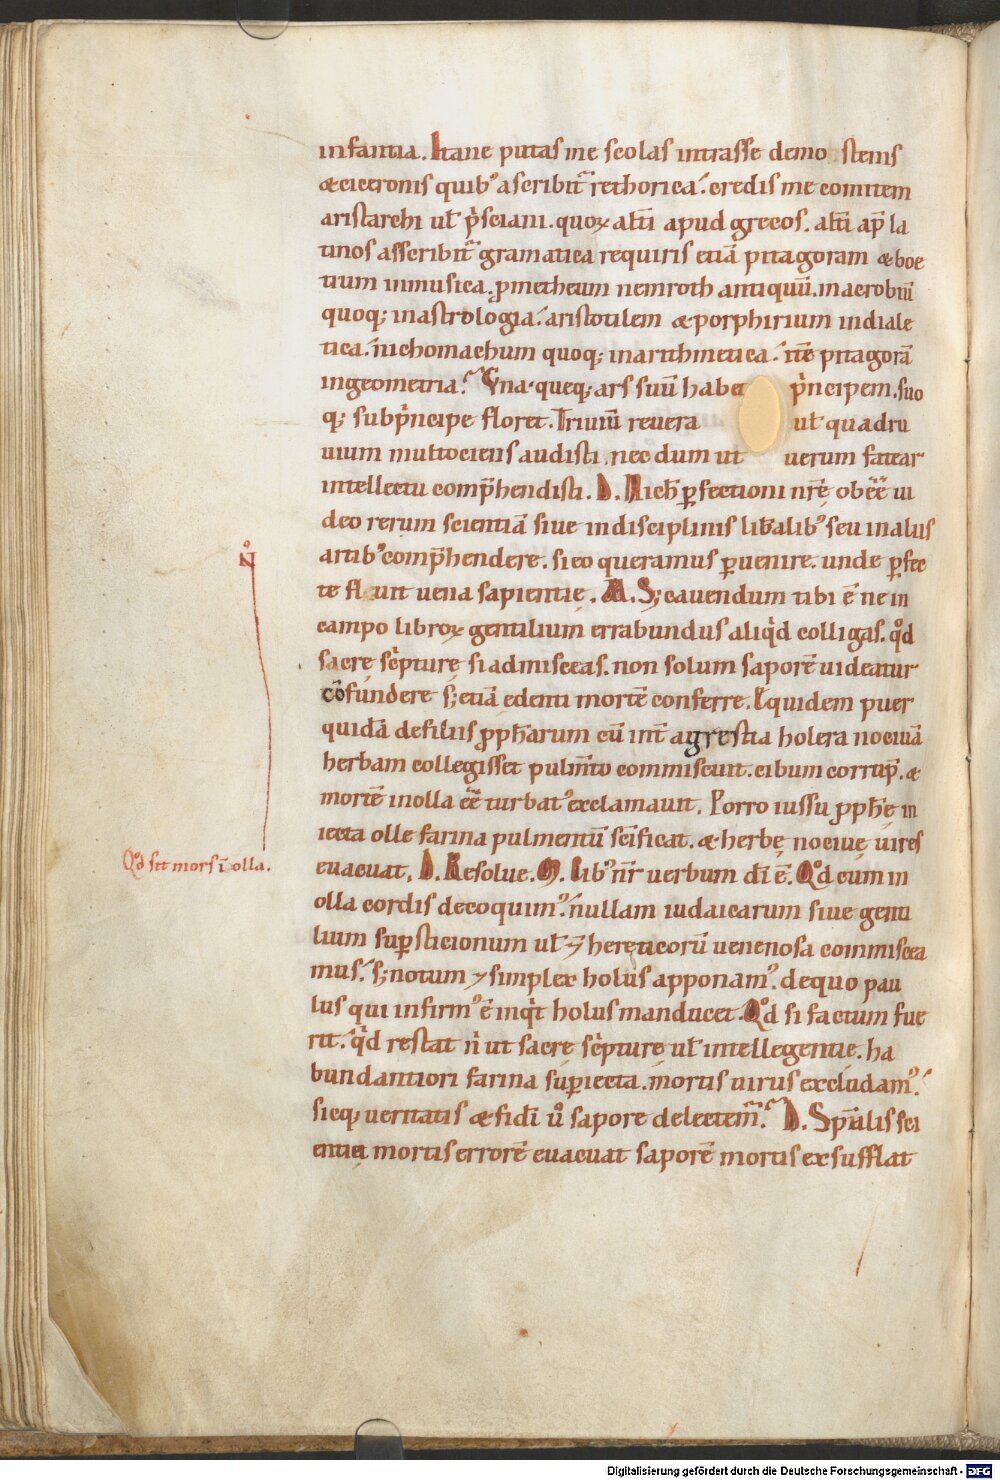 infantia. Itane putas me scolas intrasse demo stenis
& ciceronis quib' ascribit᷑ rethorica. credis me comitem
aristarchi ut̄ p̓sciani. quoꝝ alt̄i apud grecos. alt̄i ap̄ la
tinos asscribit᷑ gramatica requiris etiā pitagoram & boe
tium in musica. ꝓmetheum nemroth antiquū. macrobiū
quoq; in astrologia. aristotilem & porphirium in diale
tica. nichomachum quoq; in arithmetica. itē pitagorā
in geometria. Vna queq; ars suū habe p̓ncipem. suo
q; sub p̓ncipe floret. Triuiū reuera ut̄ quadru
uium multociens audisti. nec dum ut uerum fatear
intellectu comp̄hendisti. D. Nich̄ ꝑfectioni nr̄ę obēē ui
deo rerum scientiā siue in disciplinis lib̄alib' seu in aliis
artib' comp̄hendere. si eo queramus ꝑuenire. unde ꝑfec
te fluit uena sapientię. M. S; cauendum tibi ē ne in
campo libroꝝ gentilium errabundus aliq̓d colligas. qd̊
sacrę sc̓pturę si admisceas. non solum saporē uideatur
cōfundere s; etiā edenti mortē conferre. Equidem puer
quidā de filiis ꝓph̄arum cū int̄ agrestia holera nociuā
herbam collegisset pulm̄to commiscuit. cibum corrup̄. &
mortē in olla ēē turbat' exclamauit. Porro iussu ꝓph̄ę in
iecta olle farina pulmentū sc̄ificat. & herbę nociuę uires
euacuat. D. Resolue. M. Cib' nr̄ uerbum dī ē. Qd̊ cum in
olla cordis decoquim'. nullam iudaicarum siue genti
lium suꝑsticionum ut̄ ⁊ hereticorū uenenosa commiscea
mus. s; notum ⁊ simplex holus apponam'. de quo pau
lus qui infirm' ē inq̓t holus manducet. Qd̊ si factum fue
rit. q̓d restat n̄ ut sacrę sc̓pturę ut̄ intellegentię. ha
bundantiori farina suꝑiecta. mortis uirus excludam'.
sicq; ueritatis & fidī ů sapore delectem̄. D. Sp̄ualis sci
entia mortis errorē euacuat saporē mortis exsufflat
N̊
Qd̊ sit mors ī olla.
Digitalisierung gefördert durch die Deutsche Forschungsgemeinschaft - DFG